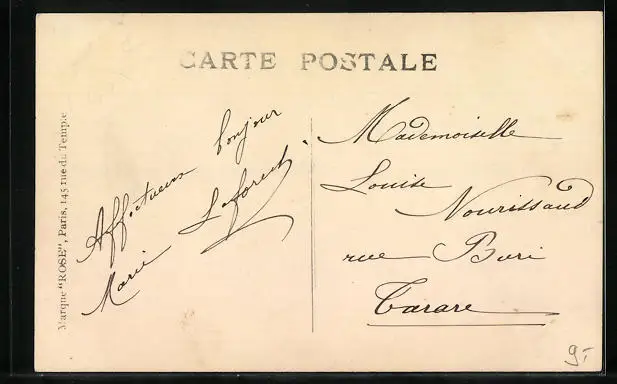 CARTE POSTALE
Marque "ROSE", Paris, 145 rue du Temple
Affectueux bonjour
Marie Laforest
Mademoiselle
Louise
Nourissaud
rue Buri
Tarare
9.-